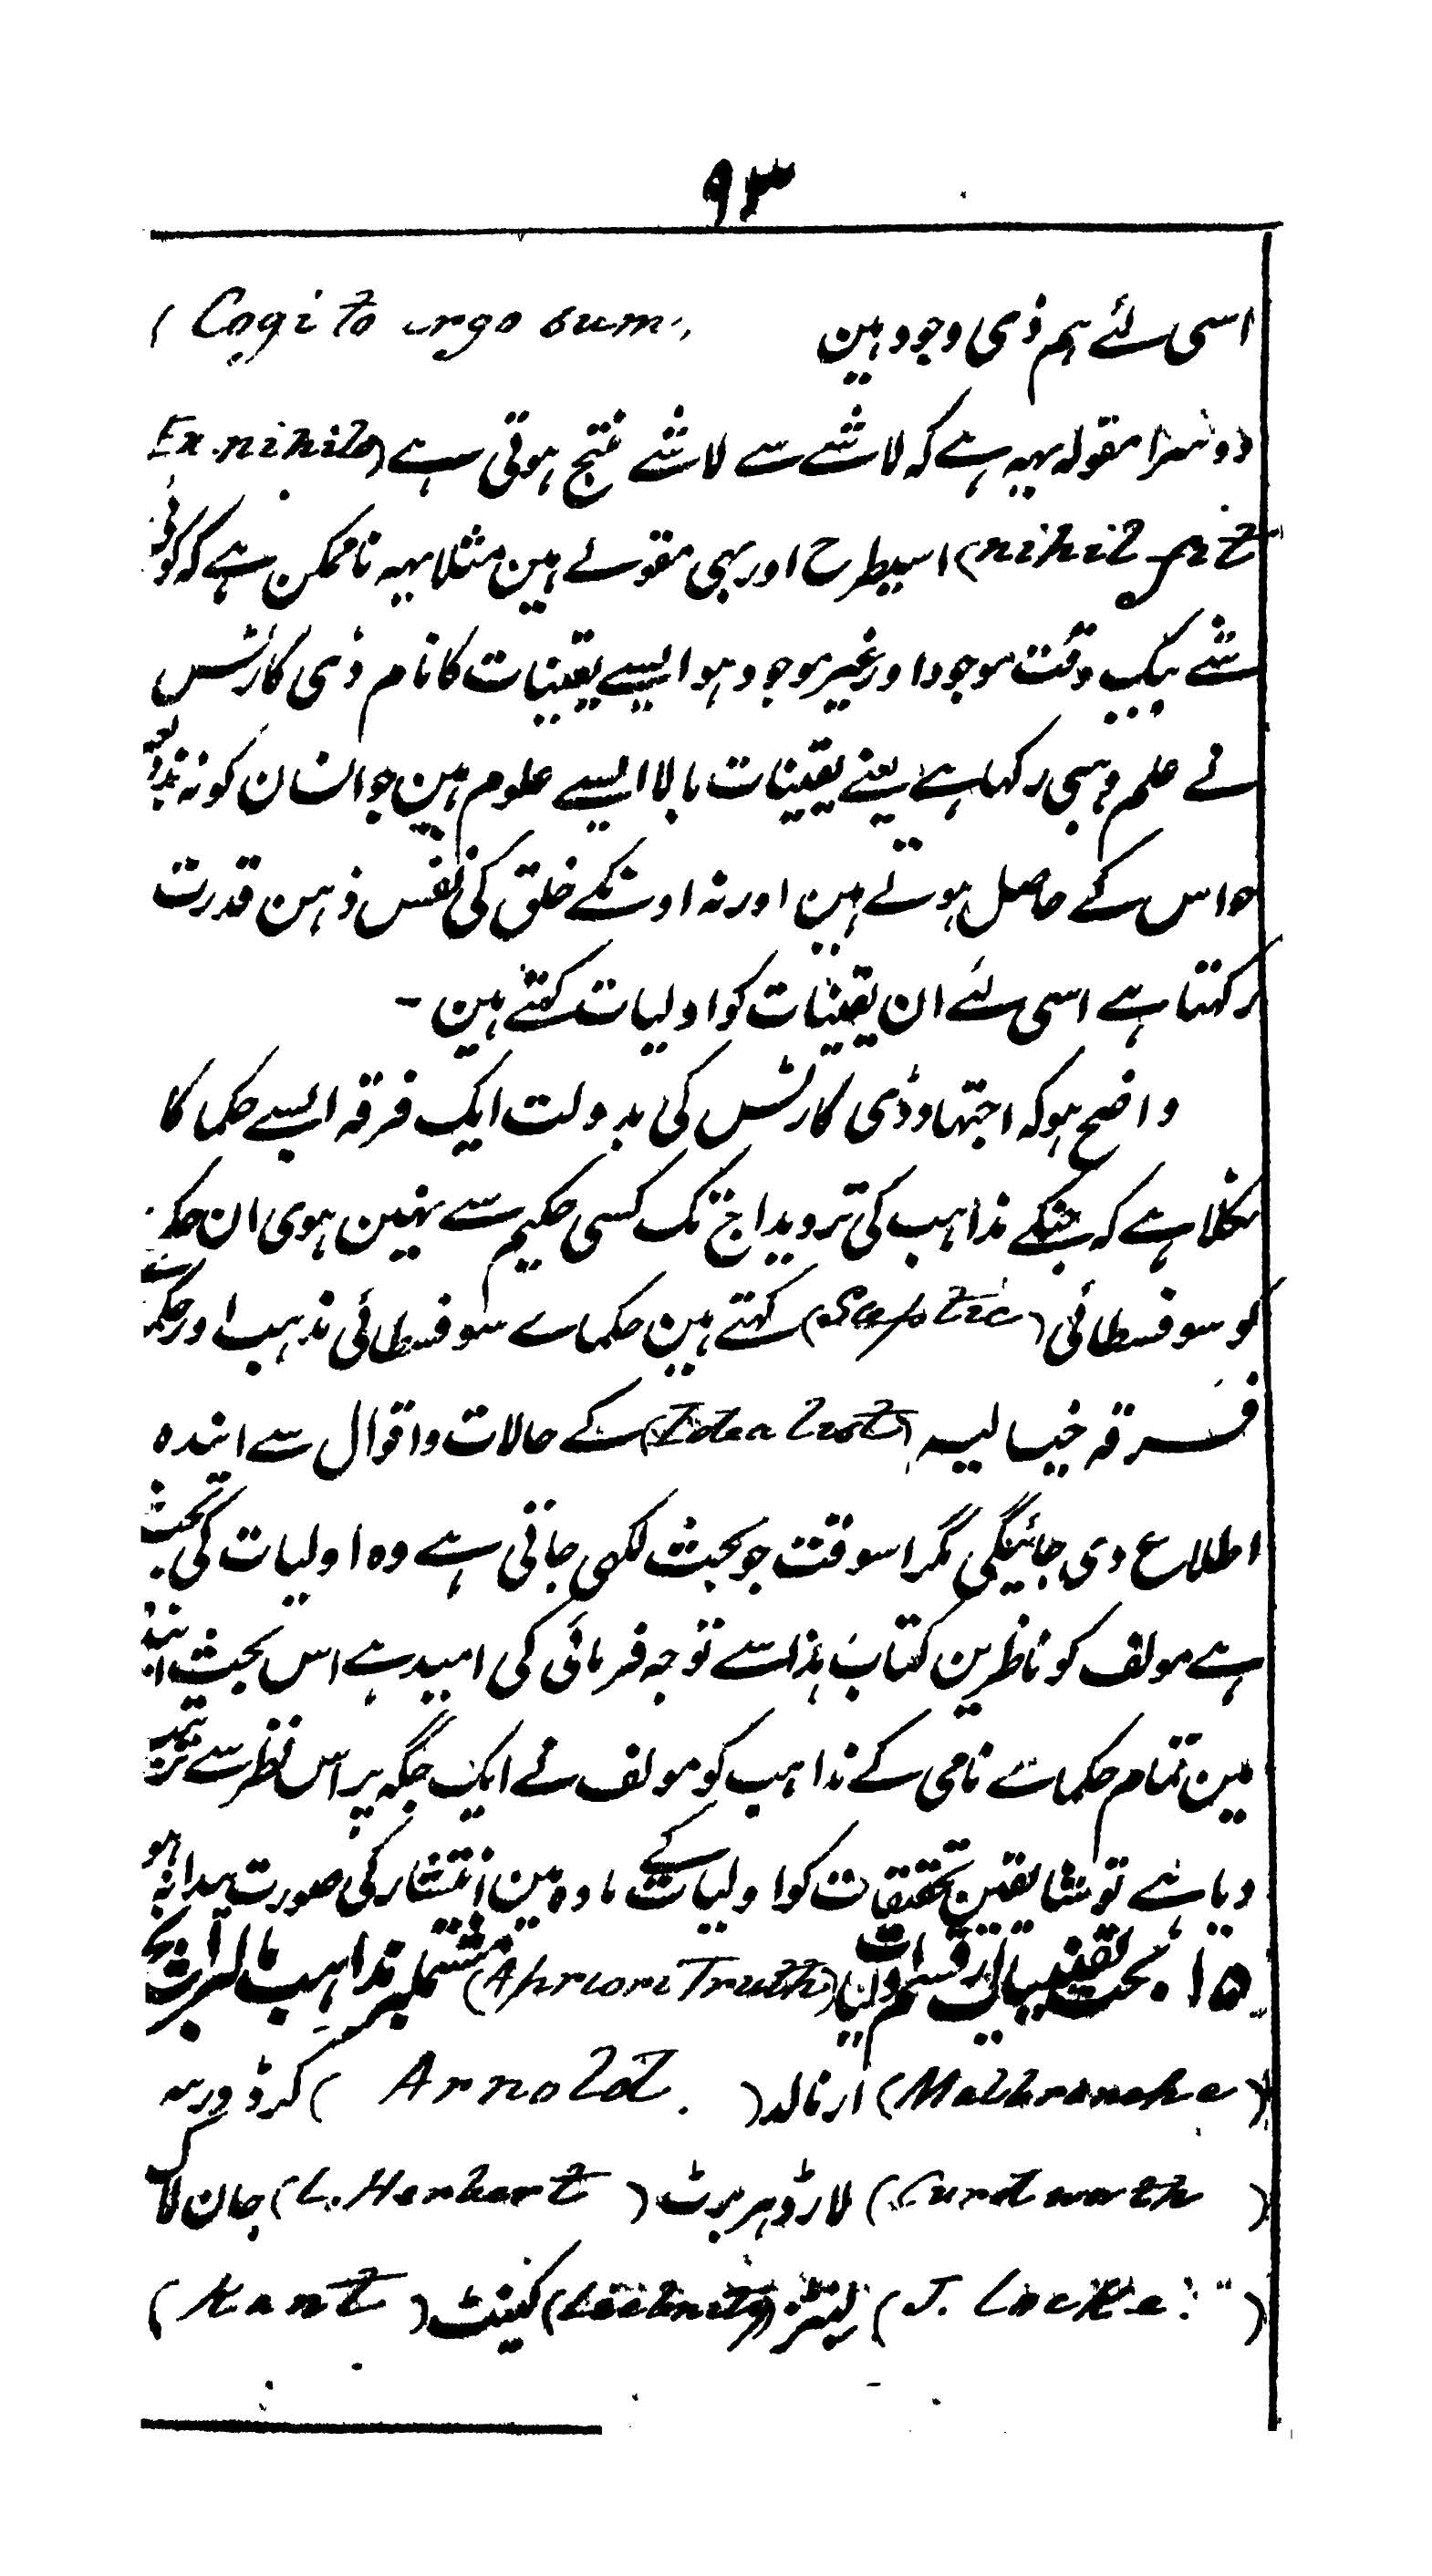 ۹۳
اسی لئے ہم ذی وجود ہین (Cogito urgo sum
دوسرا مقولہ یہہ ہے کہ لاشے سے لاشے منتج ہوتی ہے (Ex nihilo
nihil fit) اسیطرح اور بہی مقولے ہین مثلا یہہ ناممکن ہے کہ کوئی
شے بیک وقت موجود اور غیر موجود ہو ایسے یقینیات کا نام ڈی کارٹس
نے علم وہبی رکہا ہے یعنے یقینات بالا ایسے علوم ہین جو انسان کو نہ بذریعہ
حواس کے حاصل ہوتے ہین اور نہ اونکے خلق کی نفس ذہن قدرت
رکہتا ہے اسی لئے ان یقینات کو اولیات کہتے ہین -
واضح ہو کہ اجتہاد ڈی کارٹس کی بدولت ایک فرقہ ایسے حکما کا
نکلا ہے کہ جنکے مذاہب کی تردید اجتک کسی حکیم سے نہین ہوی ان حکما
کو سوفسطائی (Sceptic) کہتے ہین حکماے سوفسطائی مذہب اور حکماے
فرقہ خیالیہ (Idealist) کے حالات و اقوال سے ایندہ
اطلاع دی جائیگی مگر اسوقت جو بحث لکہی جاتی ہے وہ اولیات کی بحث
ہے مولف کو ناظرین کتاب ہذا سے توجہ فرمائی کی امید ہے اس بحث ایندہ
مین تمام حکماے نامی کے مذاہب کو مولف نے ایک جگہ پر اس نظر سے
دیا ہے تو شایقین تحقیقات کو اولیات کے مادہ مین انتشار کی صورت پیدا نہ ہو
۱۵ . بحث یقینیات از قسم اولیات (Apriori Truth) مشتملبر مذاہب مالبرانش
(Malbranche) ارنالد (Arnold) کرڈورتہ
(Curdwarth) لارڈ ہربرٹ (L. Herbert) جان لاک
(J. Locke) لبنٹز (Leebnitz) کینٹ (Kant)